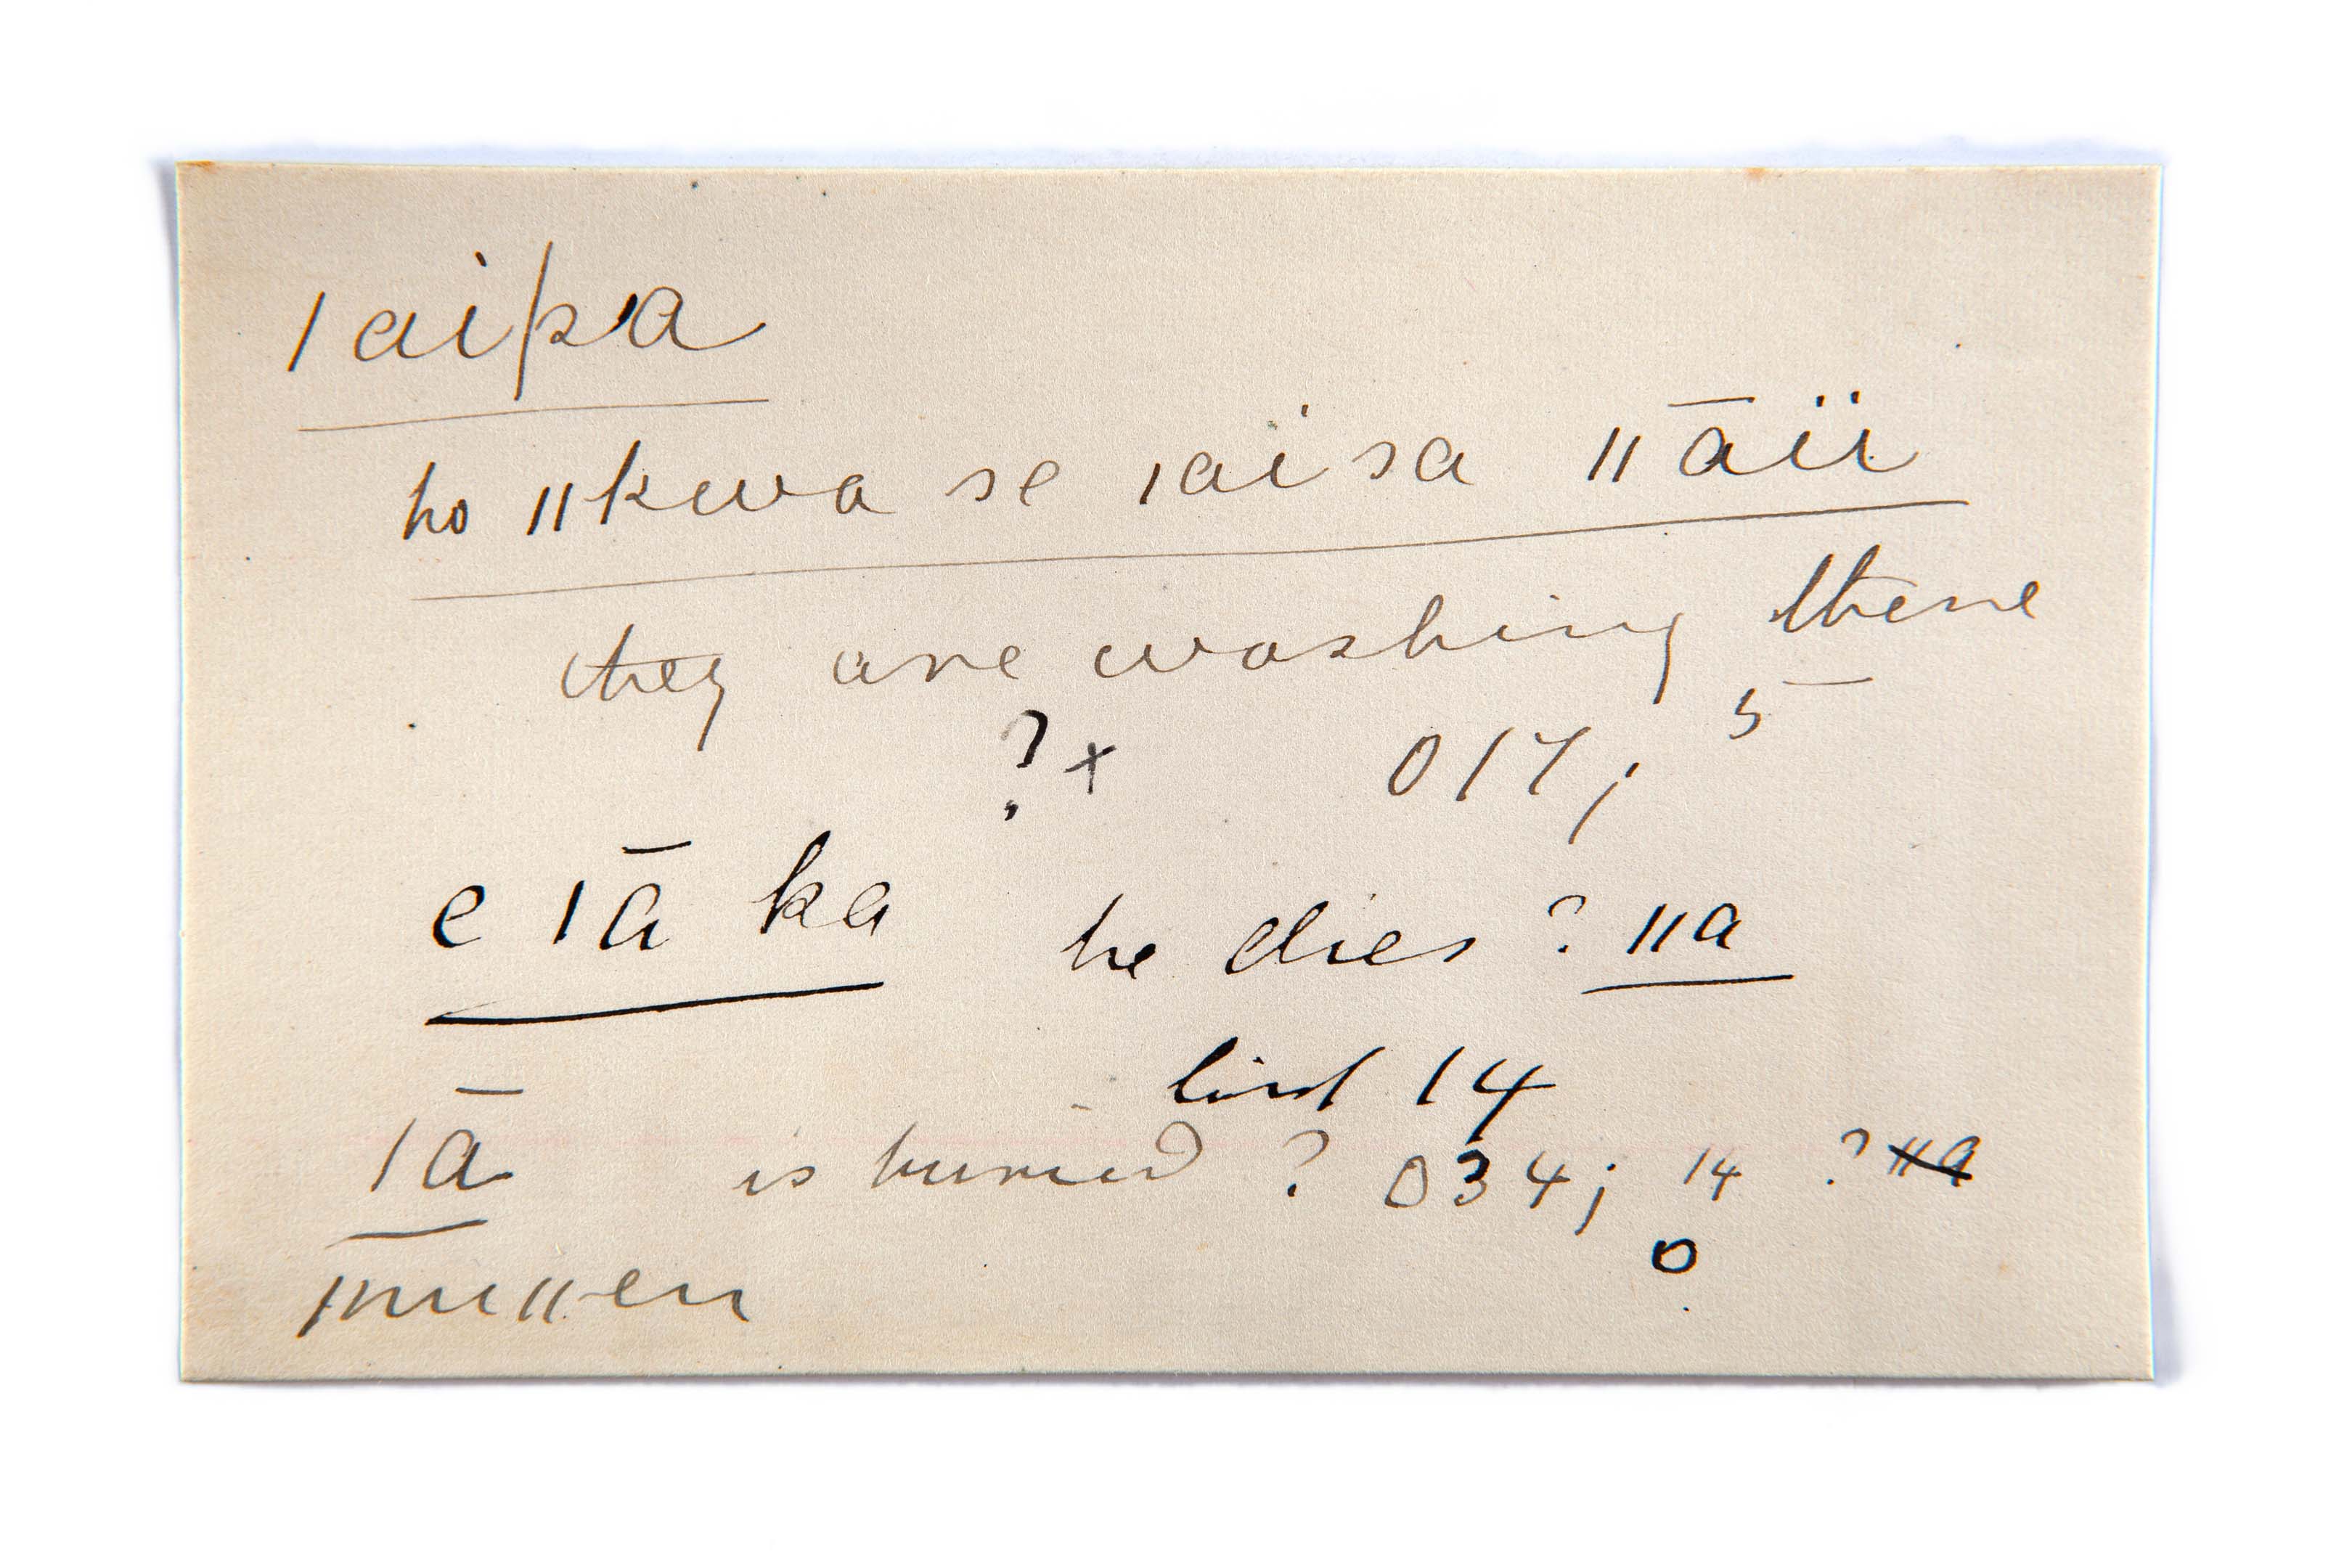 ǀaipa
ho ǁkwa se ǀaisa ǁāïï
they are washing there
?+ 017; 5
e ǀā ka he dies ? ǁa
list 14
ǀā is buried ? 034; 14 ? ǁa
0